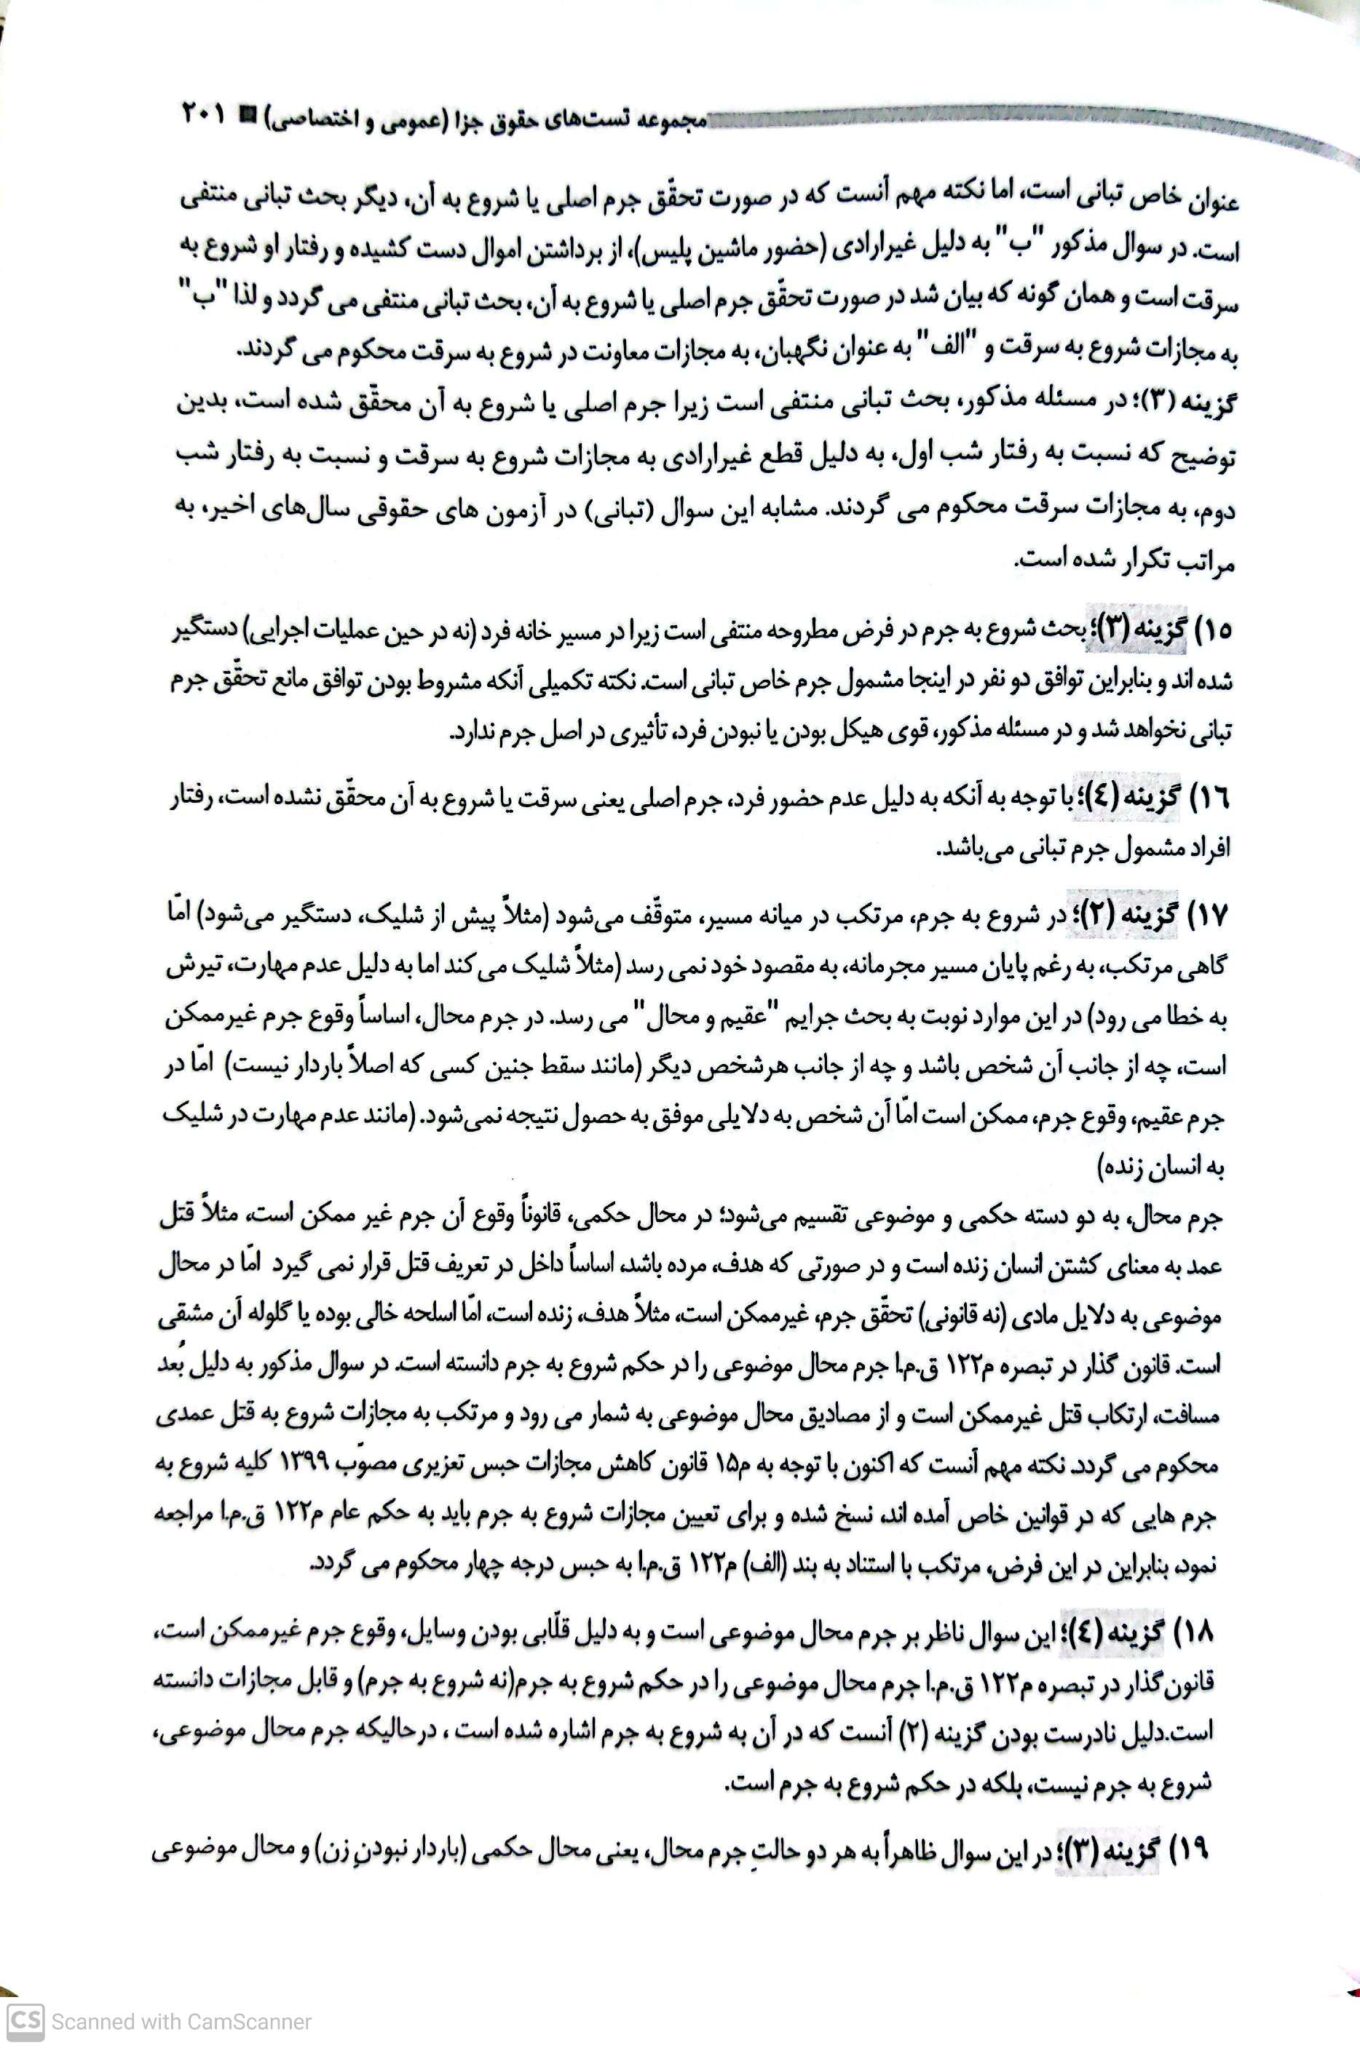 مجموعه تست‌های حقوق جزا (عمومی و اختصاصی) ■ ۲۰۱
عنوان خاص تبانی است، اما نکته مهم آنست که در صورت تحقّق جرم اصلی یا شروع به آن، دیگر بحث تبانی منتفی
است. در سوال مذکور "ب" به دلیل غیرارادی (حضور ماشین پلیس)، از برداشتن اموال دست کشیده و رفتار او شروع به
سرقت است و همان گونه که بیان شد در صورت تحقّق جرم اصلی یا شروع به آن، بحث تبانی منتفی می گردد و لذا "ب"
به مجازات شروع به سرقت و "الف" به عنوان نگهبان، به مجازات معاونت در شروع به سرقت محکوم می گردند.
گزینه (۳)؛ در مسئله مذکور، بحث تبانی منتفی است زیرا جرم اصلی یا شروع به آن محقّق شده است، بدین
توضیح که نسبت به رفتار شب اول، به دلیل قطع غیرارادی به مجازات شروع به سرقت و نسبت به رفتار شب
دوم، به مجازات سرقت محکوم می گردند. مشابه این سوال (تبانی) در آزمون های حقوقی سال‌های اخیر، به
مراتب تکرار شده است.
۱۵) گزینه (۳)؛ بحث شروع به جرم در فرض مطروحه منتفی است زیرا در مسیر خانه فرد (نه در حین عملیات اجرایی) دستگیر
شده اند و بنابراین توافق دو نفر در اینجا مشمول جرم خاص تبانی است. نکته تکمیلی آنکه مشروط بودن توافق مانع تحقّق جرم
تبانی نخواهد شد و در مسئله مذکور، قوی هیکل بودن یا نبودن فرد، تأثیری در اصل جرم ندارد.
۱۶) گزینه (۴)؛ با توجه به آنکه به دلیل عدم حضور فرد، جرم اصلی یعنی سرقت یا شروع به آن محقّق نشده است، رفتار
افراد مشمول جرم تبانی می‌باشد.
۱۷) گزینه (۲)؛ در شروع به جرم، مرتکب در میانه مسیر، متوقّف می‌شود (مثلاً پیش از شلیک، دستگیر می‌شود) امّا
گاهی مرتکب، به رغم پایان مسیر مجرمانه، به مقصود خود نمی رسد (مثلاً شلیک می کند اما به دلیل عدم مهارت، تیرش
به خطا می رود) در این موارد نوبت به بحث جرایم "عقیم و محال" می رسد. در جرم محال، اساساً وقوع جرم غیرممکن
است، چه از جانب آن شخص باشد و چه از جانب هرشخص دیگر (مانند سقط جنین کسی که اصلاً باردار نیست) امّا در
جرم عقیم، وقوع جرم، ممکن است امّا آن شخص به دلایلی موفق به حصول نتیجه نمی‌شود. (مانند عدم مهارت در شلیک
به انسان زنده)
جرم محال، به دو دسته حکمی و موضوعی تقسیم می‌شود؛ در محال حکمی، قانوناً وقوع آن جرم غیر ممکن است، مثلاً قتل
عمد به معنای کشتن انسان زنده است و در صورتی که هدف، مرده باشد، اساساً داخل در تعریف قتل قرار نمی گیرد امّا در محال
موضوعی به دلایل مادی (نه قانونی) تحقّق جرم، غیرممکن است، مثلاً هدف، زنده است، امّا اسلحه خالی بوده یا گلوله آن مشقی
است. قانون گذار در تبصره م۱۲۲ ق.م.ا جرم محال موضوعی را در حکم شروع به جرم دانسته است. در سوال مذکور به دلیل بُعد
مسافت، ارتکاب قتل غیرممکن است و از مصادیق محال موضوعی به شمار می رود و مرتکب به مجازات شروع به قتل عمدی
محکوم می گردد. نکته مهم آنست که اکنون با توجه به م۱۵ قانون کاهش مجازات حبس تعزیری مصوّب ۱۳۹۹ کلیه شروع به
جرم هایی که در قوانین خاص آمده اند، نسخ شده و برای تعیین مجازات شروع به جرم باید به حکم عام م۱۲۲ ق.م.ا مراجعه
نمود، بنابراین در این فرض، مرتکب با استناد به بند (الف) م۱۲۲ ق.م.ا به حبس درجه چهار محکوم می گردد.
۱۸) گزینه (۴)؛ این سوال ناظر بر جرم محال موضوعی است و به دلیل قلّابی بودن وسایل، وقوع جرم غیرممکن است،
قانون‌گذار در تبصره م۱۲۲ ق.م.ا جرم محال موضوعی را در حکم شروع به جرم(نه شروع به جرم) و قابل مجازات دانسته
است.دلیل نادرست بودن گزینه (۲) آنست که در آن به شروع به جرم اشاره شده است ، درحالیکه جرم محال موضوعی،
شروع به جرم نیست، بلکه در حکم شروع به جرم است.
۱۹) گزینه (۳)؛ در این سوال ظاهراً به هر دو حالتِ جرم محال، یعنی محال حکمی (باردار نبودنِ زن) و محال موضوعی
CS Scanned with CamScanner